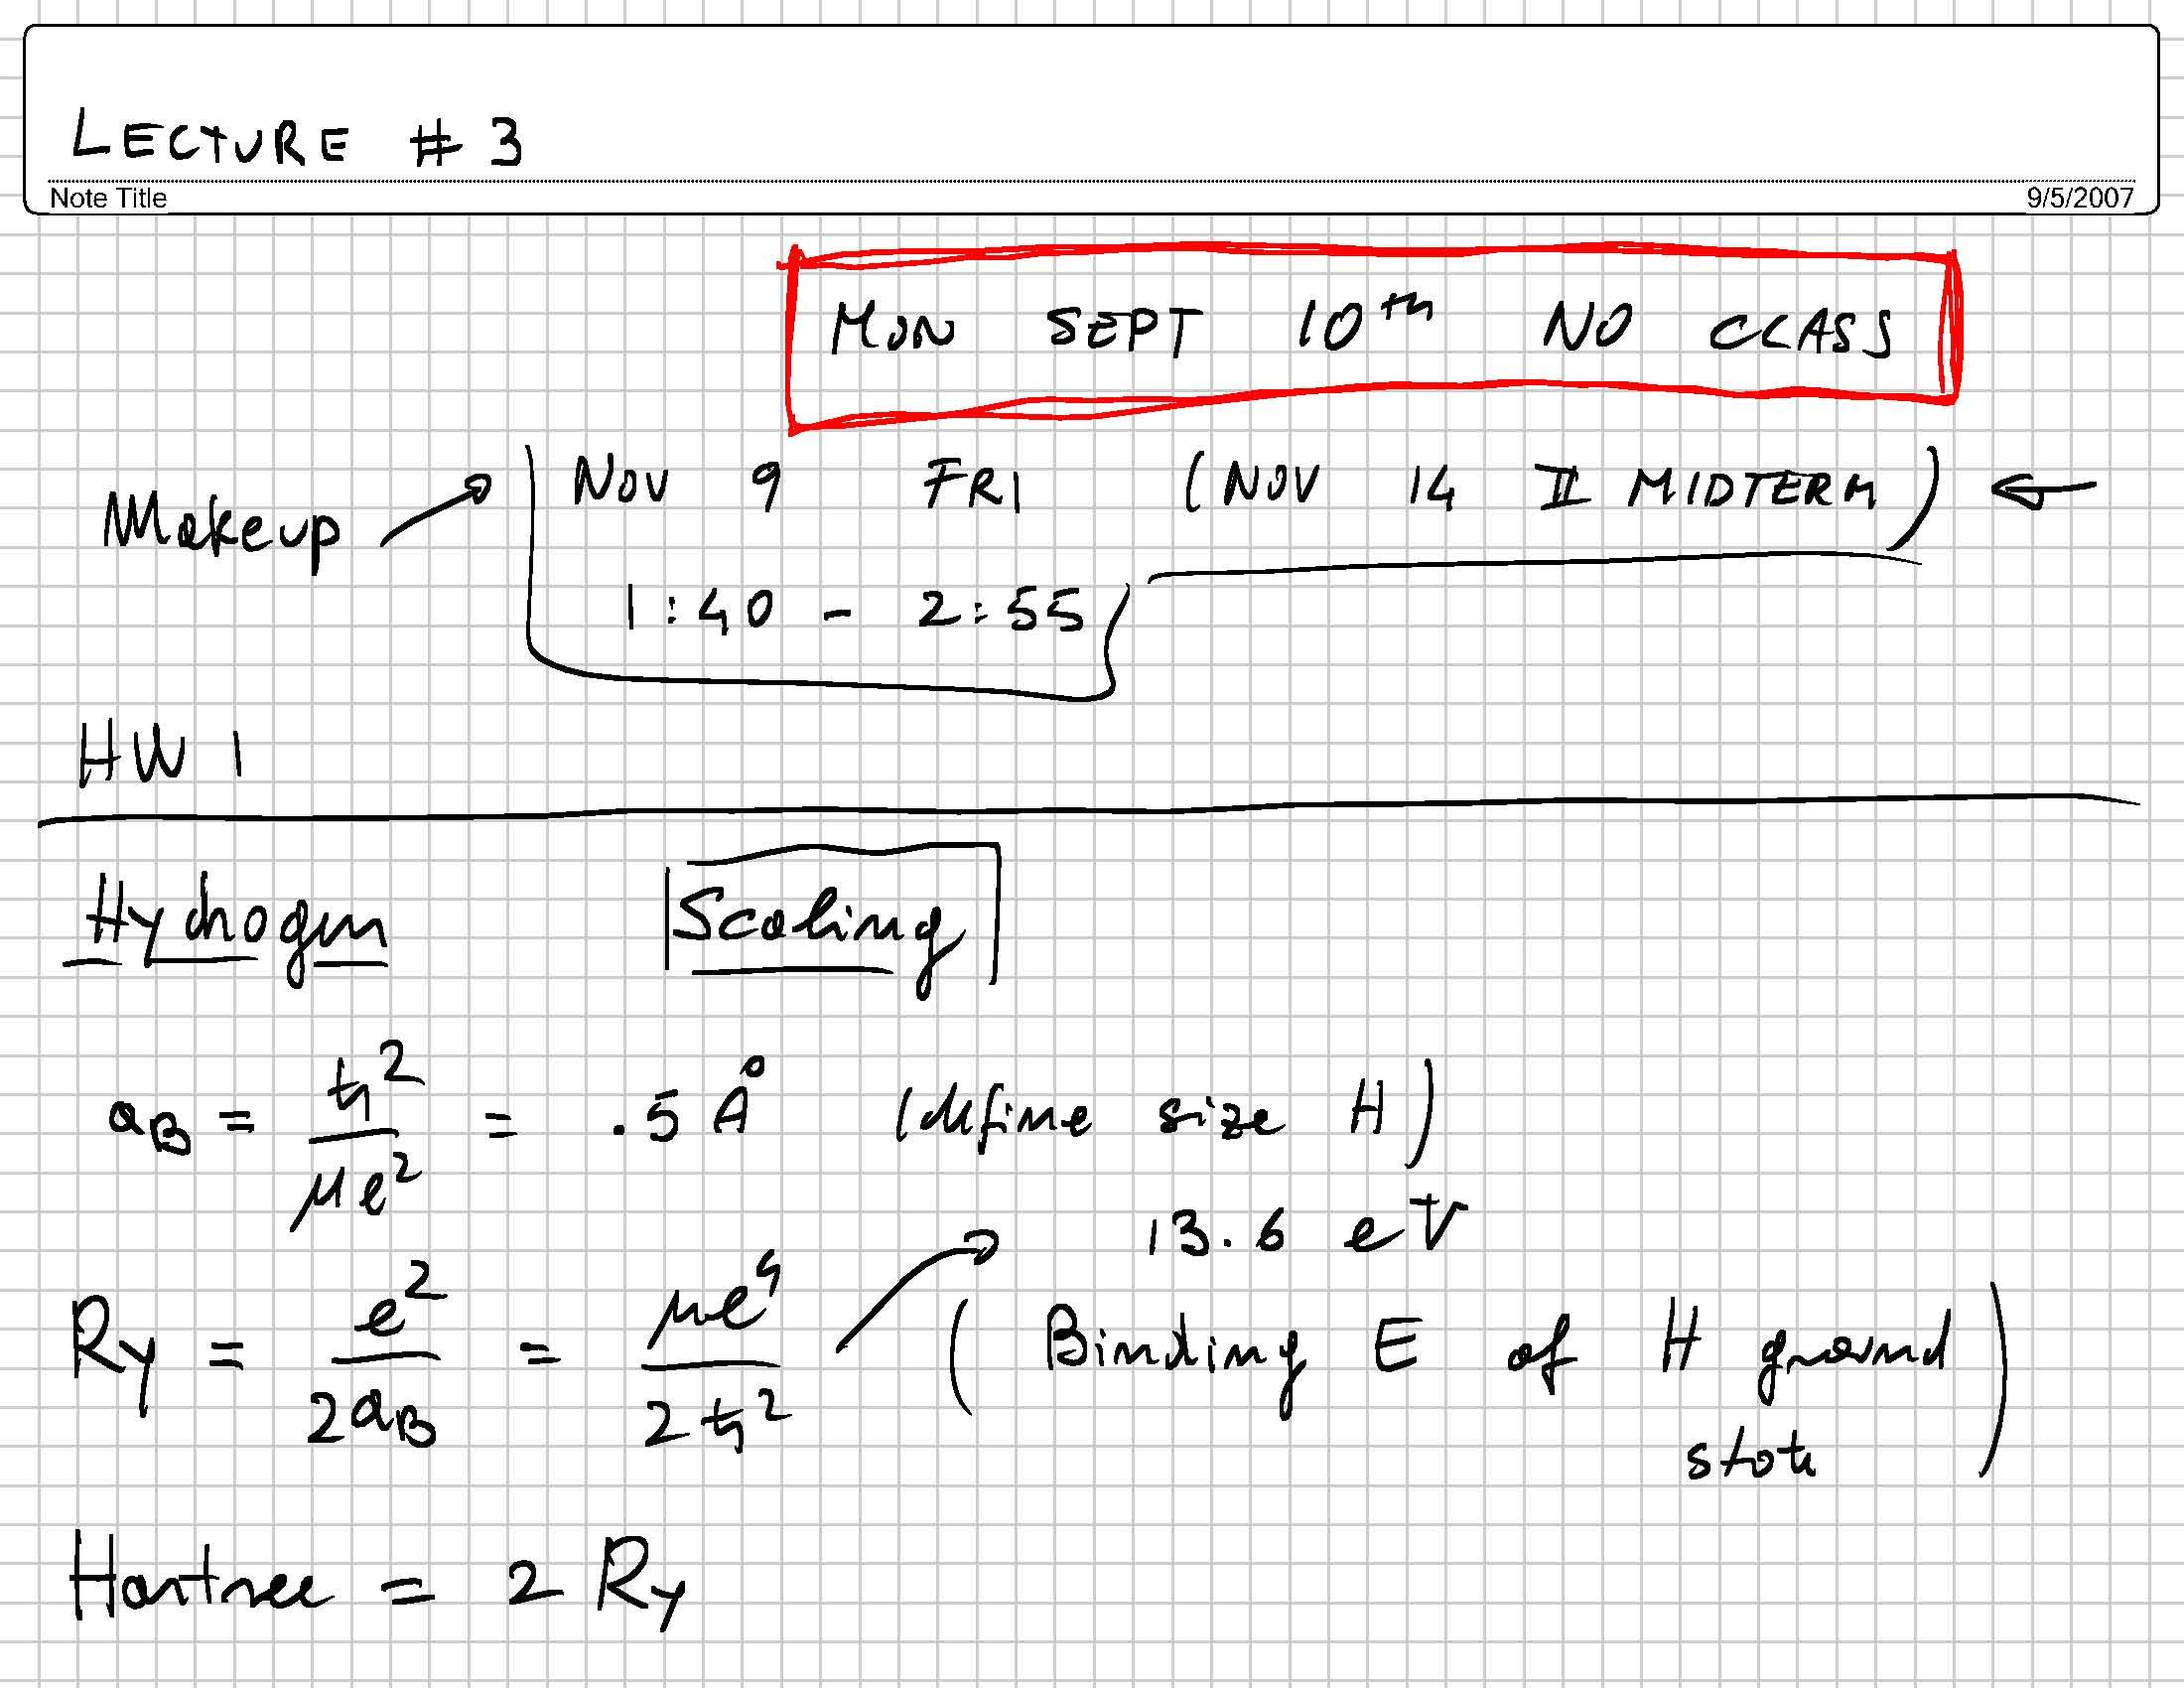 LECTURE # 3
Note Title 9/5/2007
MON SEPT 10th NO CLASS
Makeup → NOV 9 FRI (NOV 14 II MIDTERM) ←
1:40 - 2:55
HW 1
Hydrogen Scaling
a_B = ħ²/μe² = .5 Å (define size H)
13.6 eV
Ry = e²/2a_B = μe⁴/2ħ² → (Binding E of H ground
state)
Hartree = 2 Ry